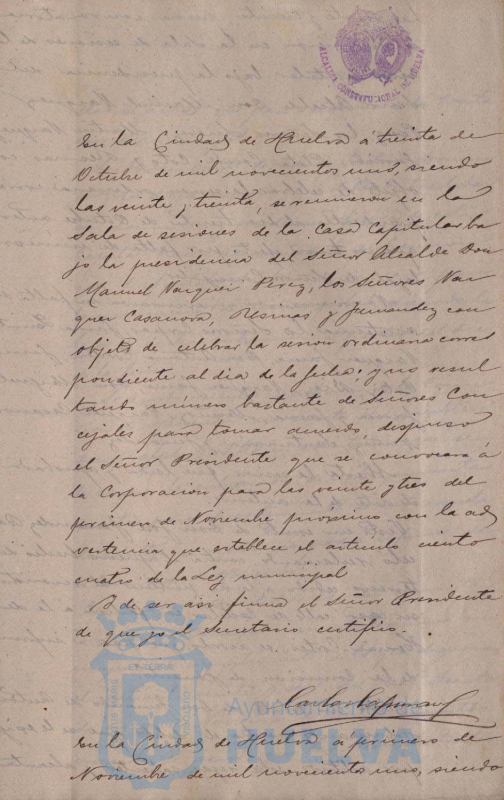 ALCALDIA CONSTITUCIONAL DE HUELVA
En la Ciudad de Huelva á treinta de
Octubre de mil novecientos uno, siendo
las veinte y treinta, se reunieron en la
Sala de sesiones de la casa capitular ba
jo la presidencia del Señor Alcalde Don
Manuel Vazquez Perez, los Señores Vaz
quez Casanova, Resinas y Fernandez con
objeto de celebrar la sesion ordinaria corres
pondiente al dia de la fecha; y no resul
tando número bastante de Señores Con
cejales para tomar acuerdo, dispuso
el Señor Presidente que se convocara á
la Corporacion para las veinte y tres del
primero de Noviembre próximo con la ad
vertencia que establece el artículo ciento
cuatro de la Ley municipal
Y de ser asi firma el Señor Presidente
de que yo el Secretario certifico.
En la Ciudad de Huelva a primero de
Noviembre de mil novecientos uno, siendo
Ayuntamiento de
HUELVA